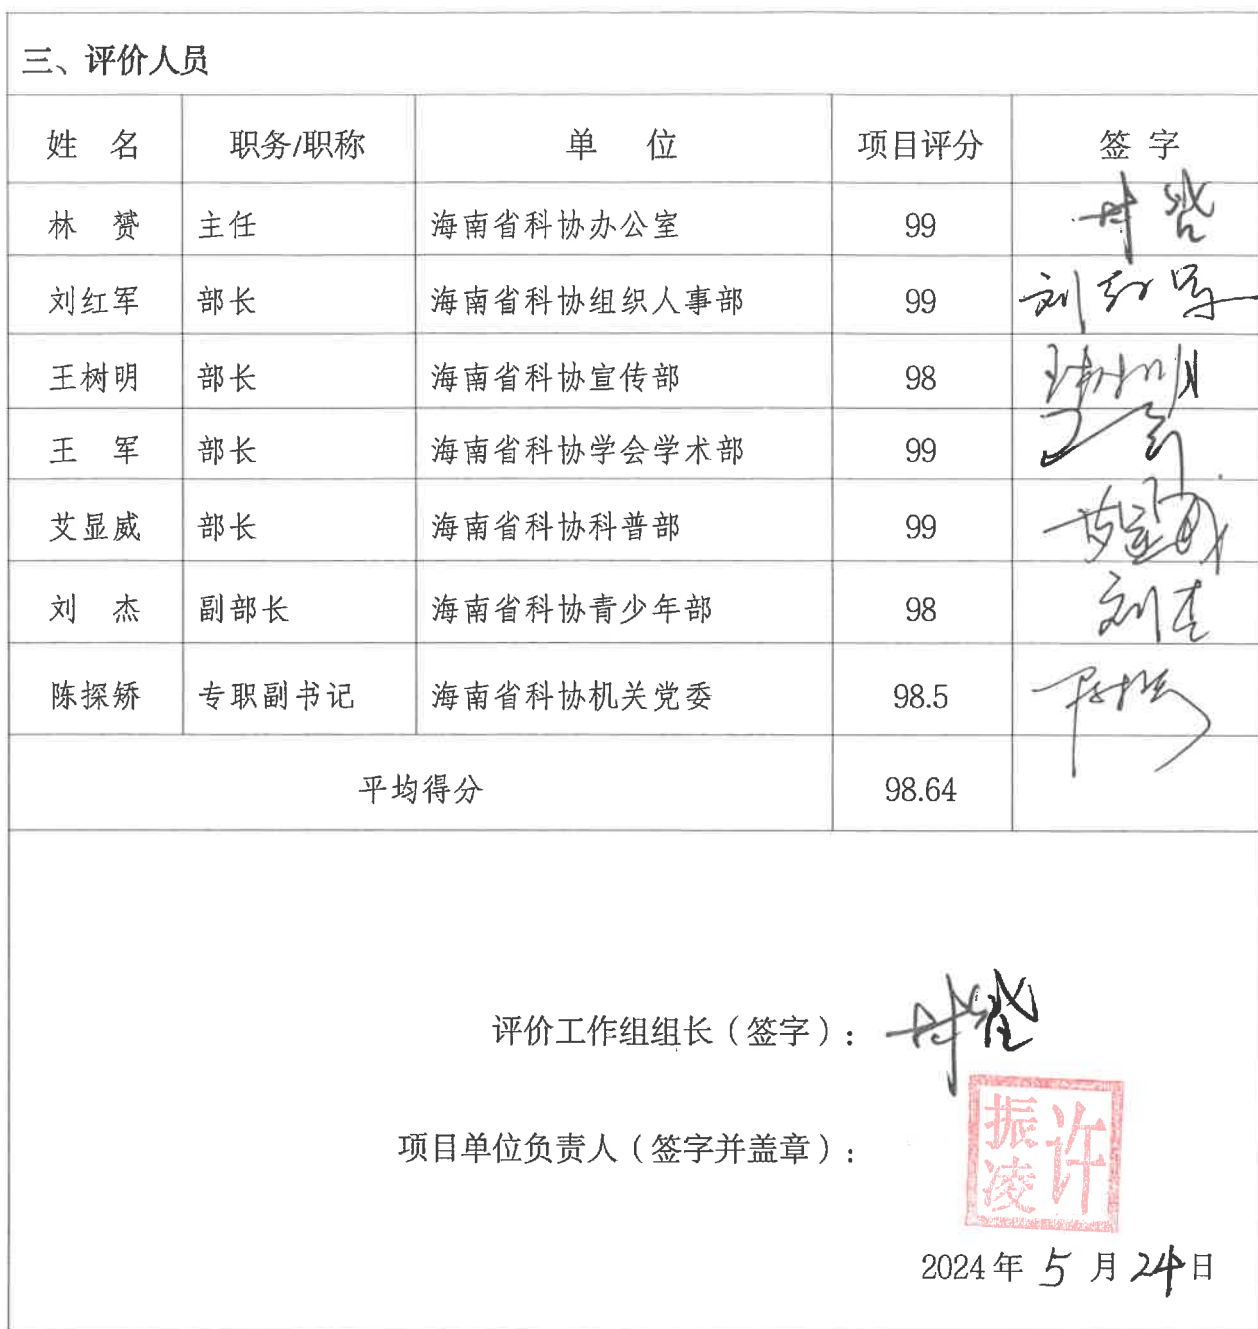 三、评价人员
姓 名 职务/职称 单 位 项目评分 签 字
林 赟 主任 海南省科协办公室 99
刘红军 部长 海南省科协组织人事部 99 刘红军
王树明 部长 海南省科协宣传部 98 王树明
王 军 部长 海南省科协学会学术部 99 王军
艾显威 部长 海南省科协科普部 99 艾显威
刘 杰 副部长 海南省科协青少年部 98 刘杰
陈探矫 专职副书记 海南省科协机关党委 98.5
平均得分 98.64
评价工作组组长（签字）：
项目单位负责人（签字并盖章）： 许振凌
2024年 5 月 24日